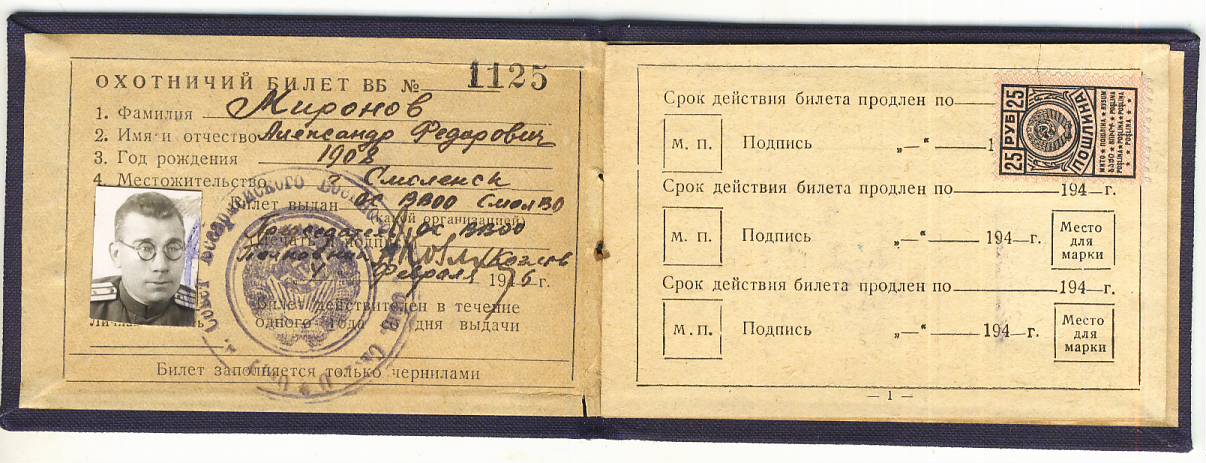 ОХОТНИЧИЙ БИЛЕТ ВБ № 1125
1. Фамилия Миронов
2. Имя и отчество Александр Федорович
3. Год рождения 1908
4. Местожительство г. Смоленск
Билет выдан ОС ВВОО СмолВО
(какой организацией)
Председатель ОС ВВОО
Печать и подпись
Полковник Козлов
4 Февраля 1946 г.
Билет действителен в течение
одного года со дня выдачи
Личная
Билет заполняется только чернилами
Совет Всеармейского
Срок действия билета продлен по
М. П. Подпись „—“ 1
Срок действия билета продлен по 194—г.
М. П. Подпись „—“ 194—г. Место для марки
Срок действия билета продлен по 194—г.
М. П. Подпись „—“ 194—г. Место для марки
— 1 —
25 РУБ 25
ПОШЛИНА